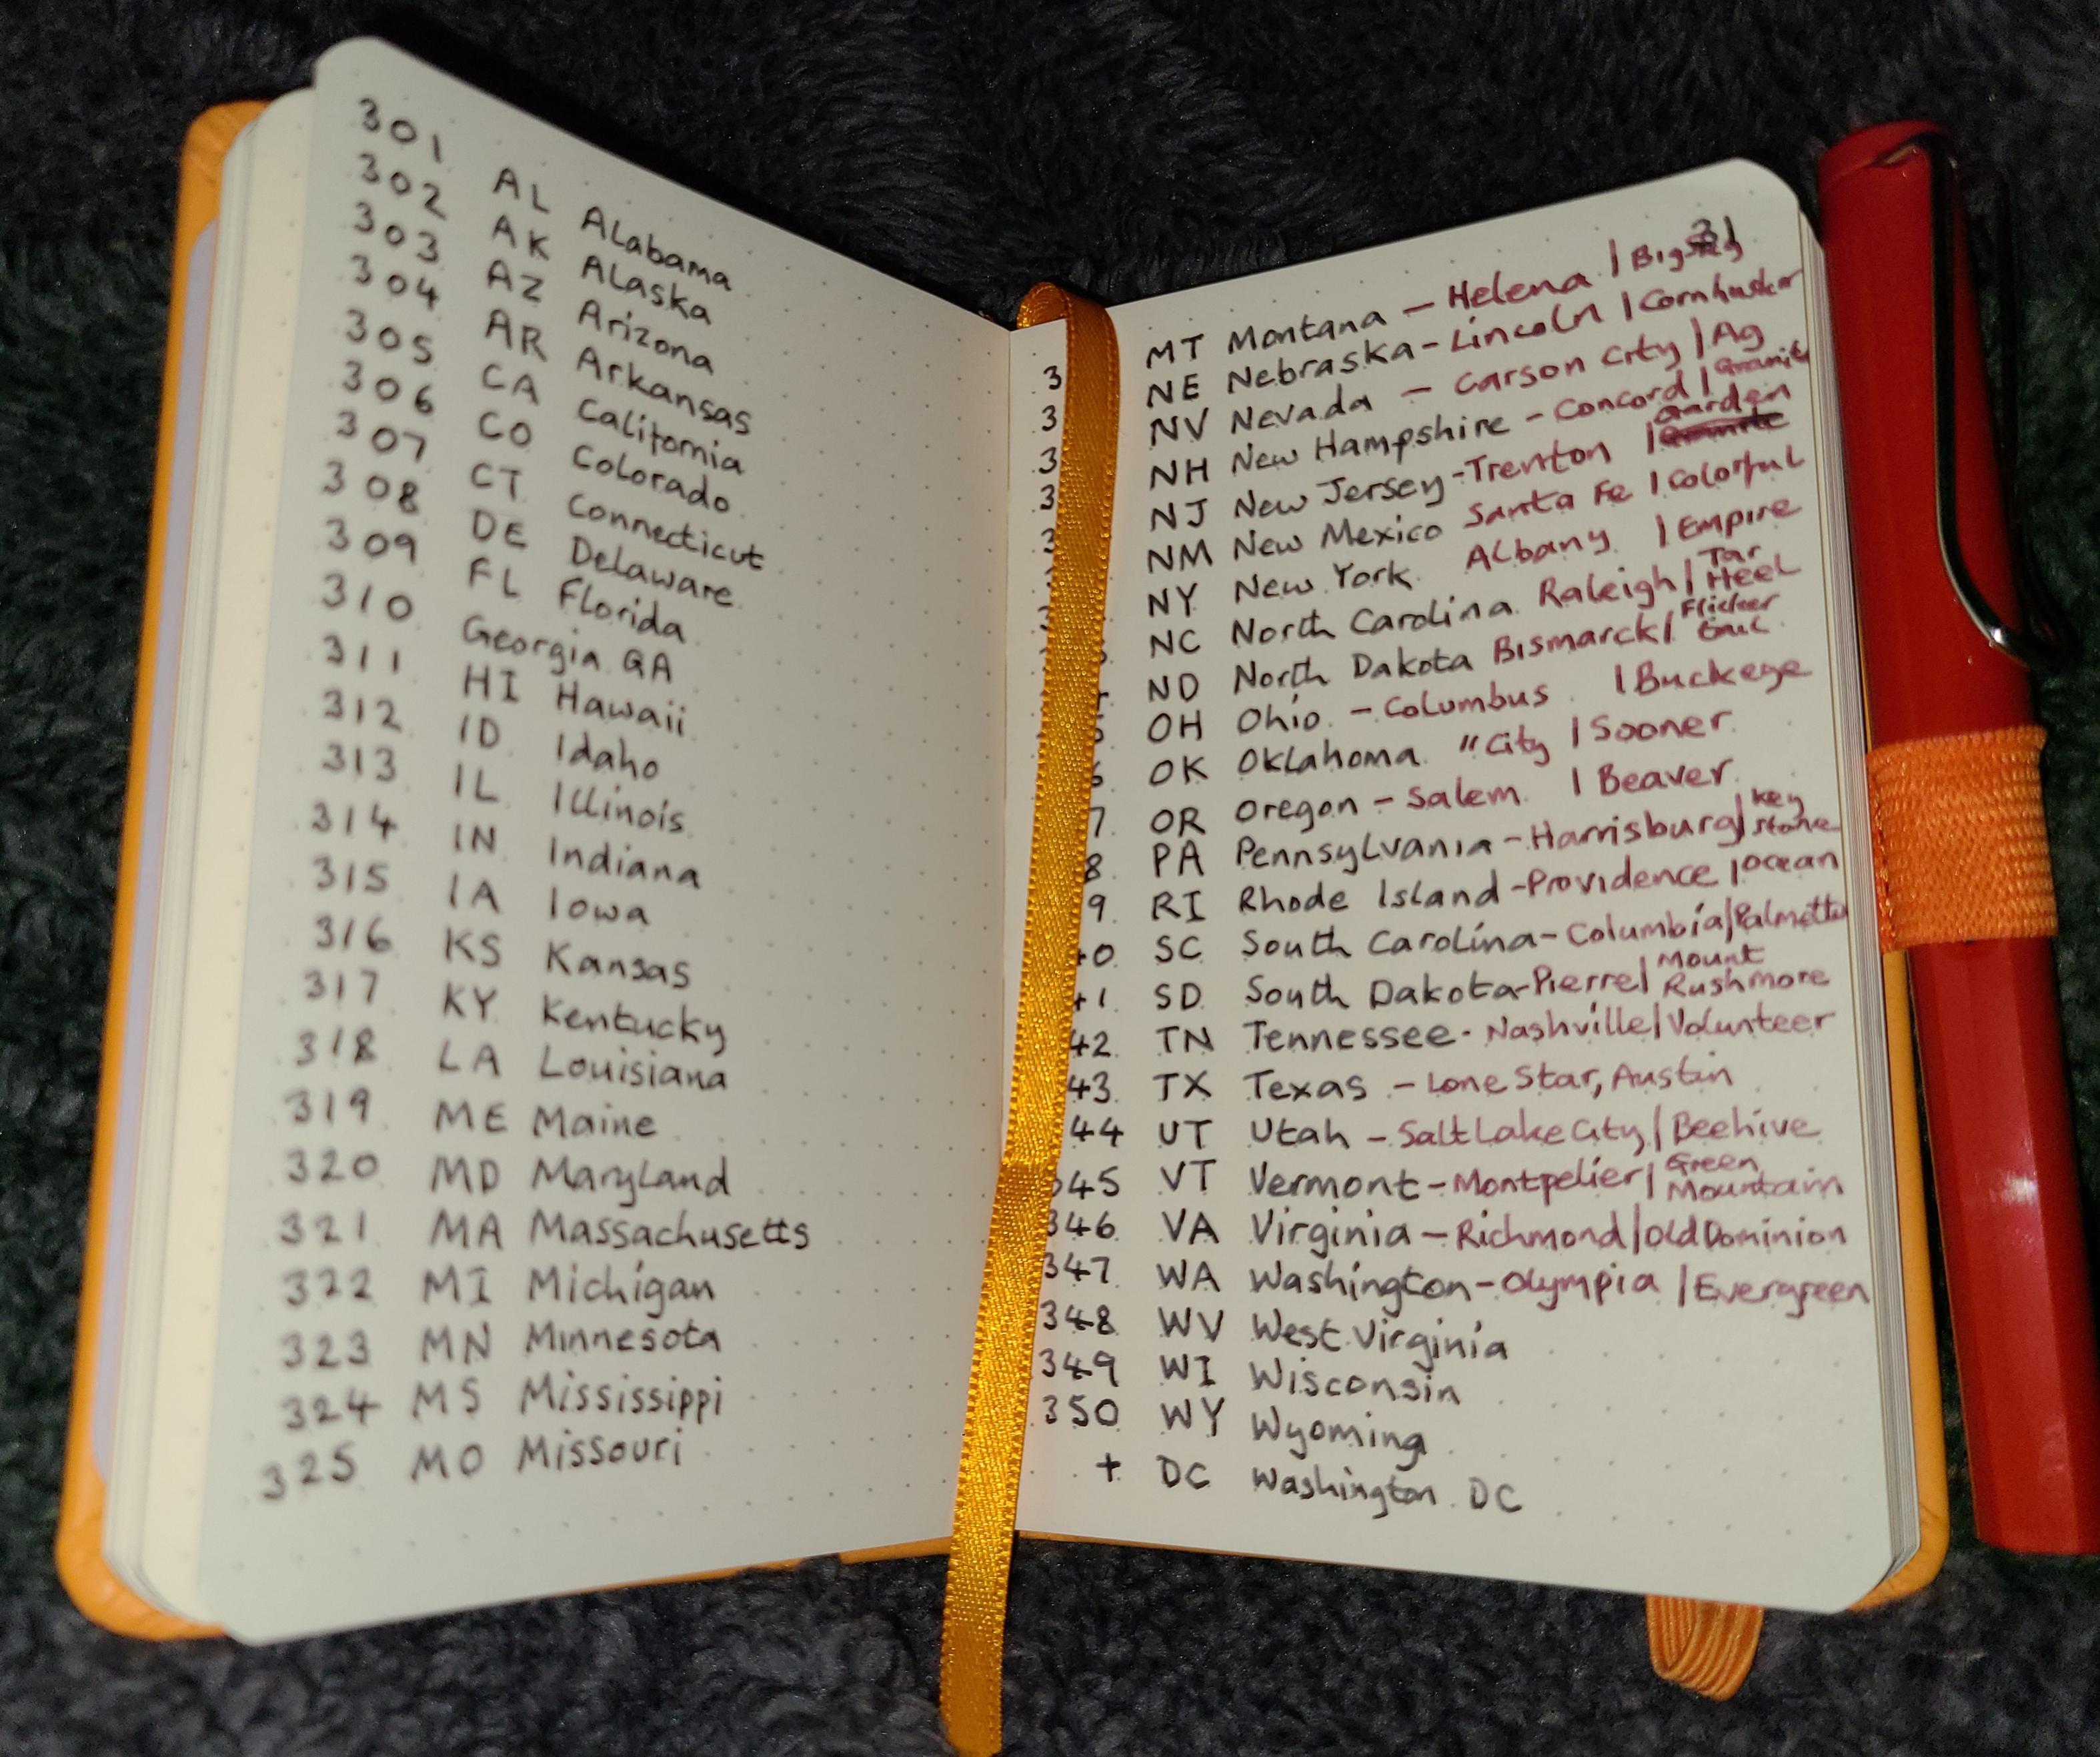 301 AL Alabama
302 AK Alaska
303 AZ Arizona
304 AR Arkansas
305 CA California
306 CO Colorado
307 CT Connecticut
308 DE Delaware
309 FL Florida
310 Georgia GA
311 HI Hawaii
312 ID Idaho
313 IL Illinois
314 IN Indiana
315 IA Iowa
316 KS Kansas
317 KY Kentucky
318 LA Louisiana
319 ME Maine
320 MD Maryland
321 MA Massachusetts
322 MI Michigan
323 MN Minnesota
324 MS Mississippi
325 MO Missouri
31
MT Montana - Helena | Big
3 NE Nebraska - Lincoln | Cornhusker
3 NV Nevada - Carson City | Ag
3 NH New Hampshire - Concord | Granite
3 NJ New Jersey - Trenton | Garden
3 NM New Mexico Santa Fe | Colorful
NY New York Albany | Empire
NC North Carolina Raleigh | Tar Heel
ND North Dakota Bismarck | Flicker
OH Ohio - Columbus | Buckeye
6 OK Oklahoma " City | Sooner
7 OR Oregon - Salem | Beaver
8 PA Pennsylvania - Harrisburg | Key stone
9 RI Rhode Island - Providence | Ocean
0 SC South Carolina - Columbia | Palmetto
1 SD South Dakota - Pierre | Mount Rushmore
42 TN Tennessee - Nashville | Volunteer
43 TX Texas - Lone Star, Austin
44 UT Utah - Salt Lake City | Beehive
345 VT Vermont - Montpelier | Green Mountain
346 VA Virginia - Richmond | Old Dominion
347 WA Washington - Olympia | Evergreen
348 WV West Virginia
349 WI Wisconsin
350 WY Wyoming
+ DC Washington DC